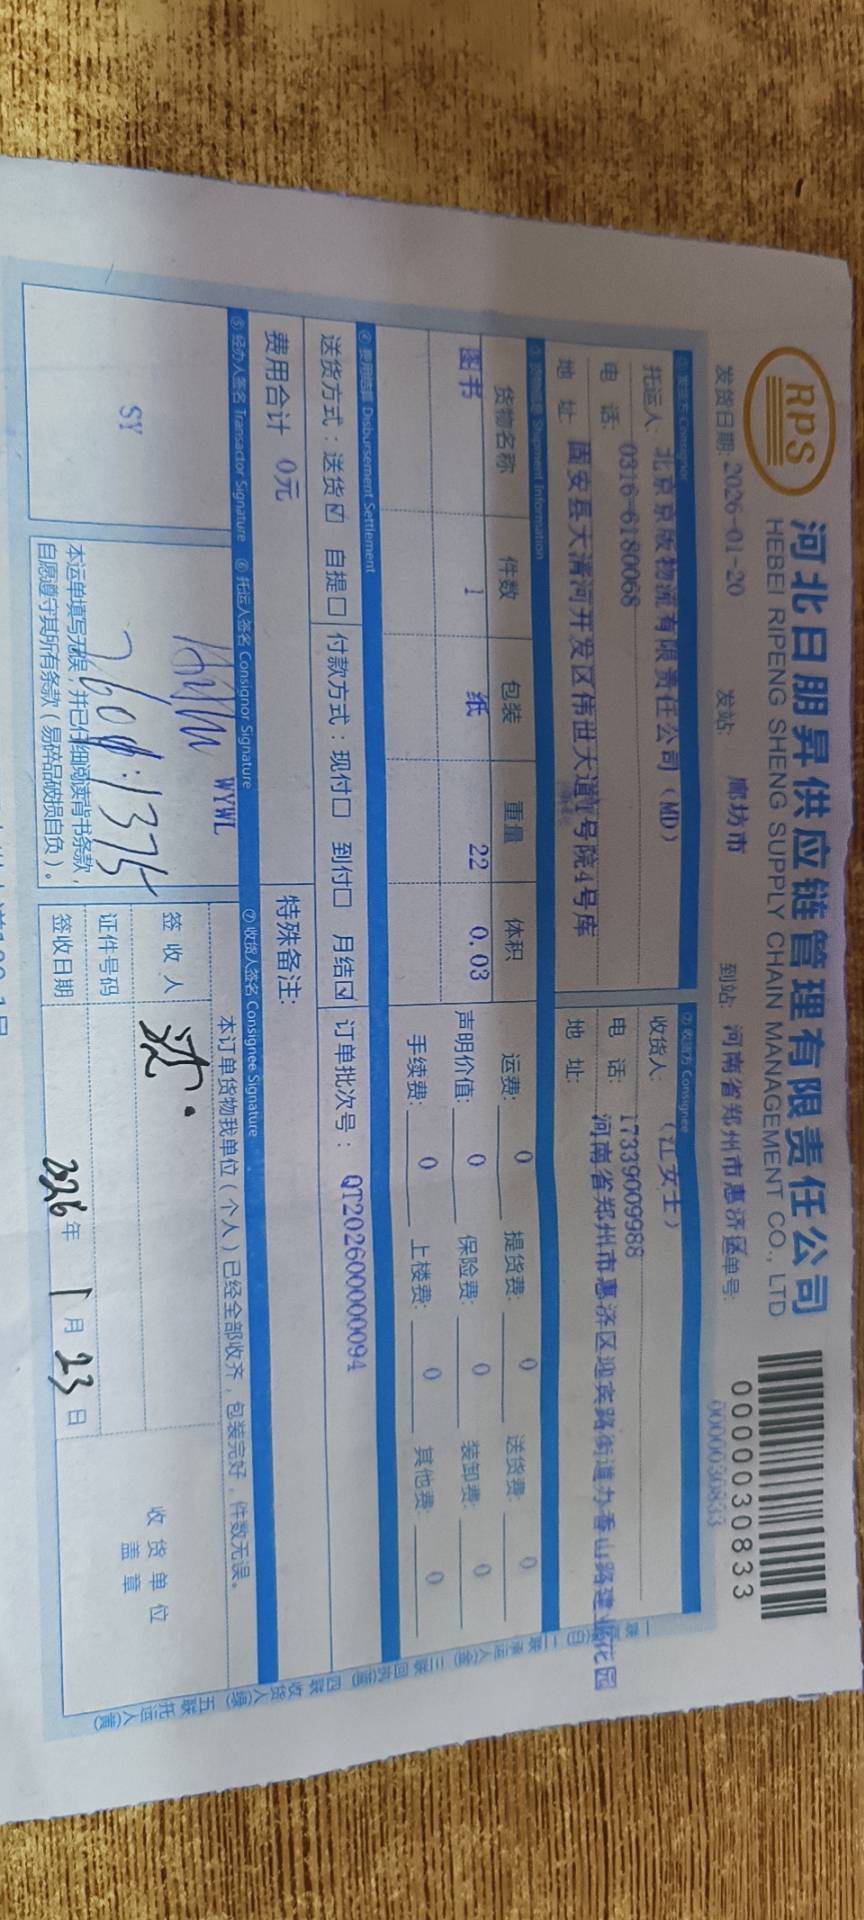 RPS
河北日朋昇供应链管理有限责任公司
HEBEI RIPENG SHENG SUPPLY CHAIN MANAGEMENT CO., LTD
0000030833
发货日期: 2026-01-20 发站: 廊坊市 到站: 河南省郑州市惠济区 单号: 0000030833
① 发货方 Consignor
② 收货方 Consignee
托运人: 北京京版物流有限责任公司(MD)
收货人: (江女士)
电 话: 0316-6180068
电 话: 17339009988
地 址: 固安县大清河开发区伟世大道 号院4号库
地 址: 河南省郑州市惠济区迎宾路街道办香山路建 花园
③ 货物信息 Shipment Information
货物名称 件数 包装 重量 体积
图书 1 纸 22 0.03
运费: 0 提货费: 0 送货费: 0
声明价值: 0 保险费: 0 装卸费: 0
手续费: 0 上楼费: 0 其他费: 0
④ 费用结算 Disbursement Settlement
送货方式:送货☑ 自提□ 付款方式:现付□ 到付□ 月结☑ 订单批次号: QT202600000094
费用合计 0元
特殊备注:
⑤ 经办人签名 Transactor Signature ⑥ 托运人签名 Consignor Signature ⑦ 收货人签名 Consignee Signature
SY
WYWL
本运单填写无误,并已仔细阅读背书条款,
自愿遵守其所有条款(易碎品破损自负)。
本订单货物我单位(个人)已经全部收齐,包装完好,件数无误。
签 收 人
证件号码
签收日期 2026 年 1 月 23 日
收货单位
盖章
一联 二联承运人(金) 三联回执(蓝) 四联收货人(绿) 五联托运人(黄)